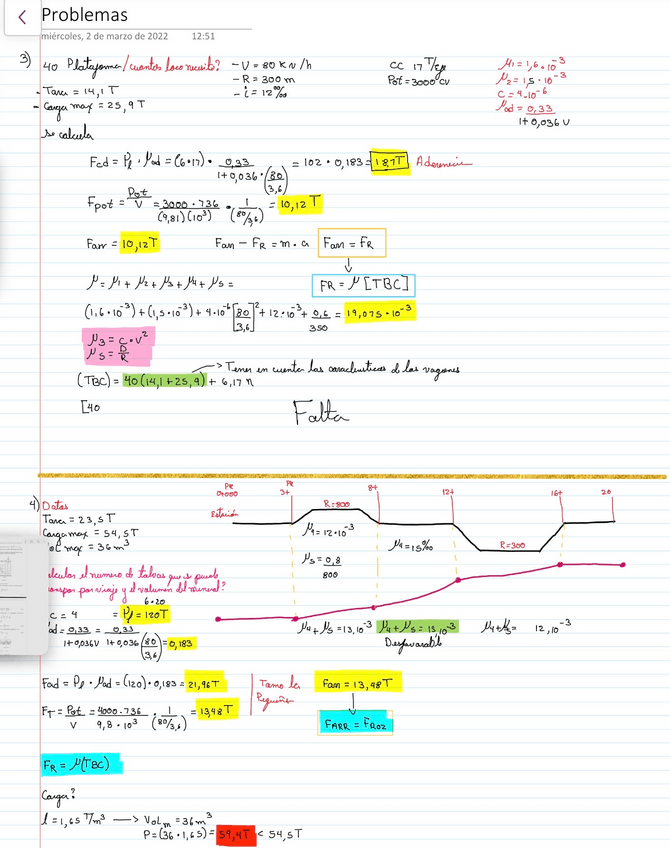 Problemas
miércoles, 2 de marzo de 2022 12:51
3) 40 Plataformas/cuantas loco necesito?
- V = 80 KN/h
- R = 300 m
- i = 12‰
CC 17 T/eje
Pot = 3000 CV
μ1 = 1,6 · 10⁻³
μ2 = 1,5 · 10⁻³
C = 4·10⁻⁶
μad = 0,33 / 1+0,036 V
- Tara = 14,1 T
- Carga max = 25,9 T
Se calcula
Fad = Pl · μad = (6·17) · 0,33 / 1+0,036·(80/3,6) = 102 · 0,183 = 18,7T Adherencia
Fpot = Pot/V = 3000 · 736 / (9,81)(10³) · 1/(80/3,6) = 10,12 T
Farr = 10,12 T Farr - FR = m · a Farr = FR
↓
μ = μ1 + μ2 + μ3 + μ4 + μ5 = FR = μ [TBC]
(1,6·10⁻³) + (1,5·10⁻³) + 4·10⁻⁶ [80/3,6]² + 12·10⁻³ + 0,6/350 = 19,075·10⁻³
μ3 = C · V²
μ5 = D/R
→ Tener en cuenta las caracteristicas de los vagones
(TBC) = 40 (14,1 + 25,9) + 6,17 n
[40
Falta
4) Datos
Tara = 23,5 T
Carga max = 54,5 T
Vol max = 36 m³
PK 0+000
PK 3+
8+
12+
16+
20
Estación
R=800
μ4 = 12·10⁻³
μ4 = 15‰
R=300
μ5 = 0,8 / 800
calcular el numero de tolvas que se puede transpor por viaje y el volumen del mineral?
6·20
C = 4 = Pl = 120T
ad = 0,33 / 1+0,036V = 0,33 / 1+0,036 (80/3,6) = 0,183
μ4 + μ5 = 13,10⁻³ μ4 + μ5 = 15,10⁻³ μ4 + μ5 = 12,10⁻³
Desfavorable
Fad = Pl · μad = (120) · 0,183 = 21,96 T
Tamo la Pequeña
Farr = 13,48 T
↓
FT = Pot/V = 4000 · 736 / 9,8 · 10³ · 1/(80/3,6) = 13,48 T
FARR = FROZ
FR = μ(TBC)
Carga?
l = 1,65 T/m³ → Volm = 36 m³
P = (36 · 1,65) = 59,4T < 54,5T